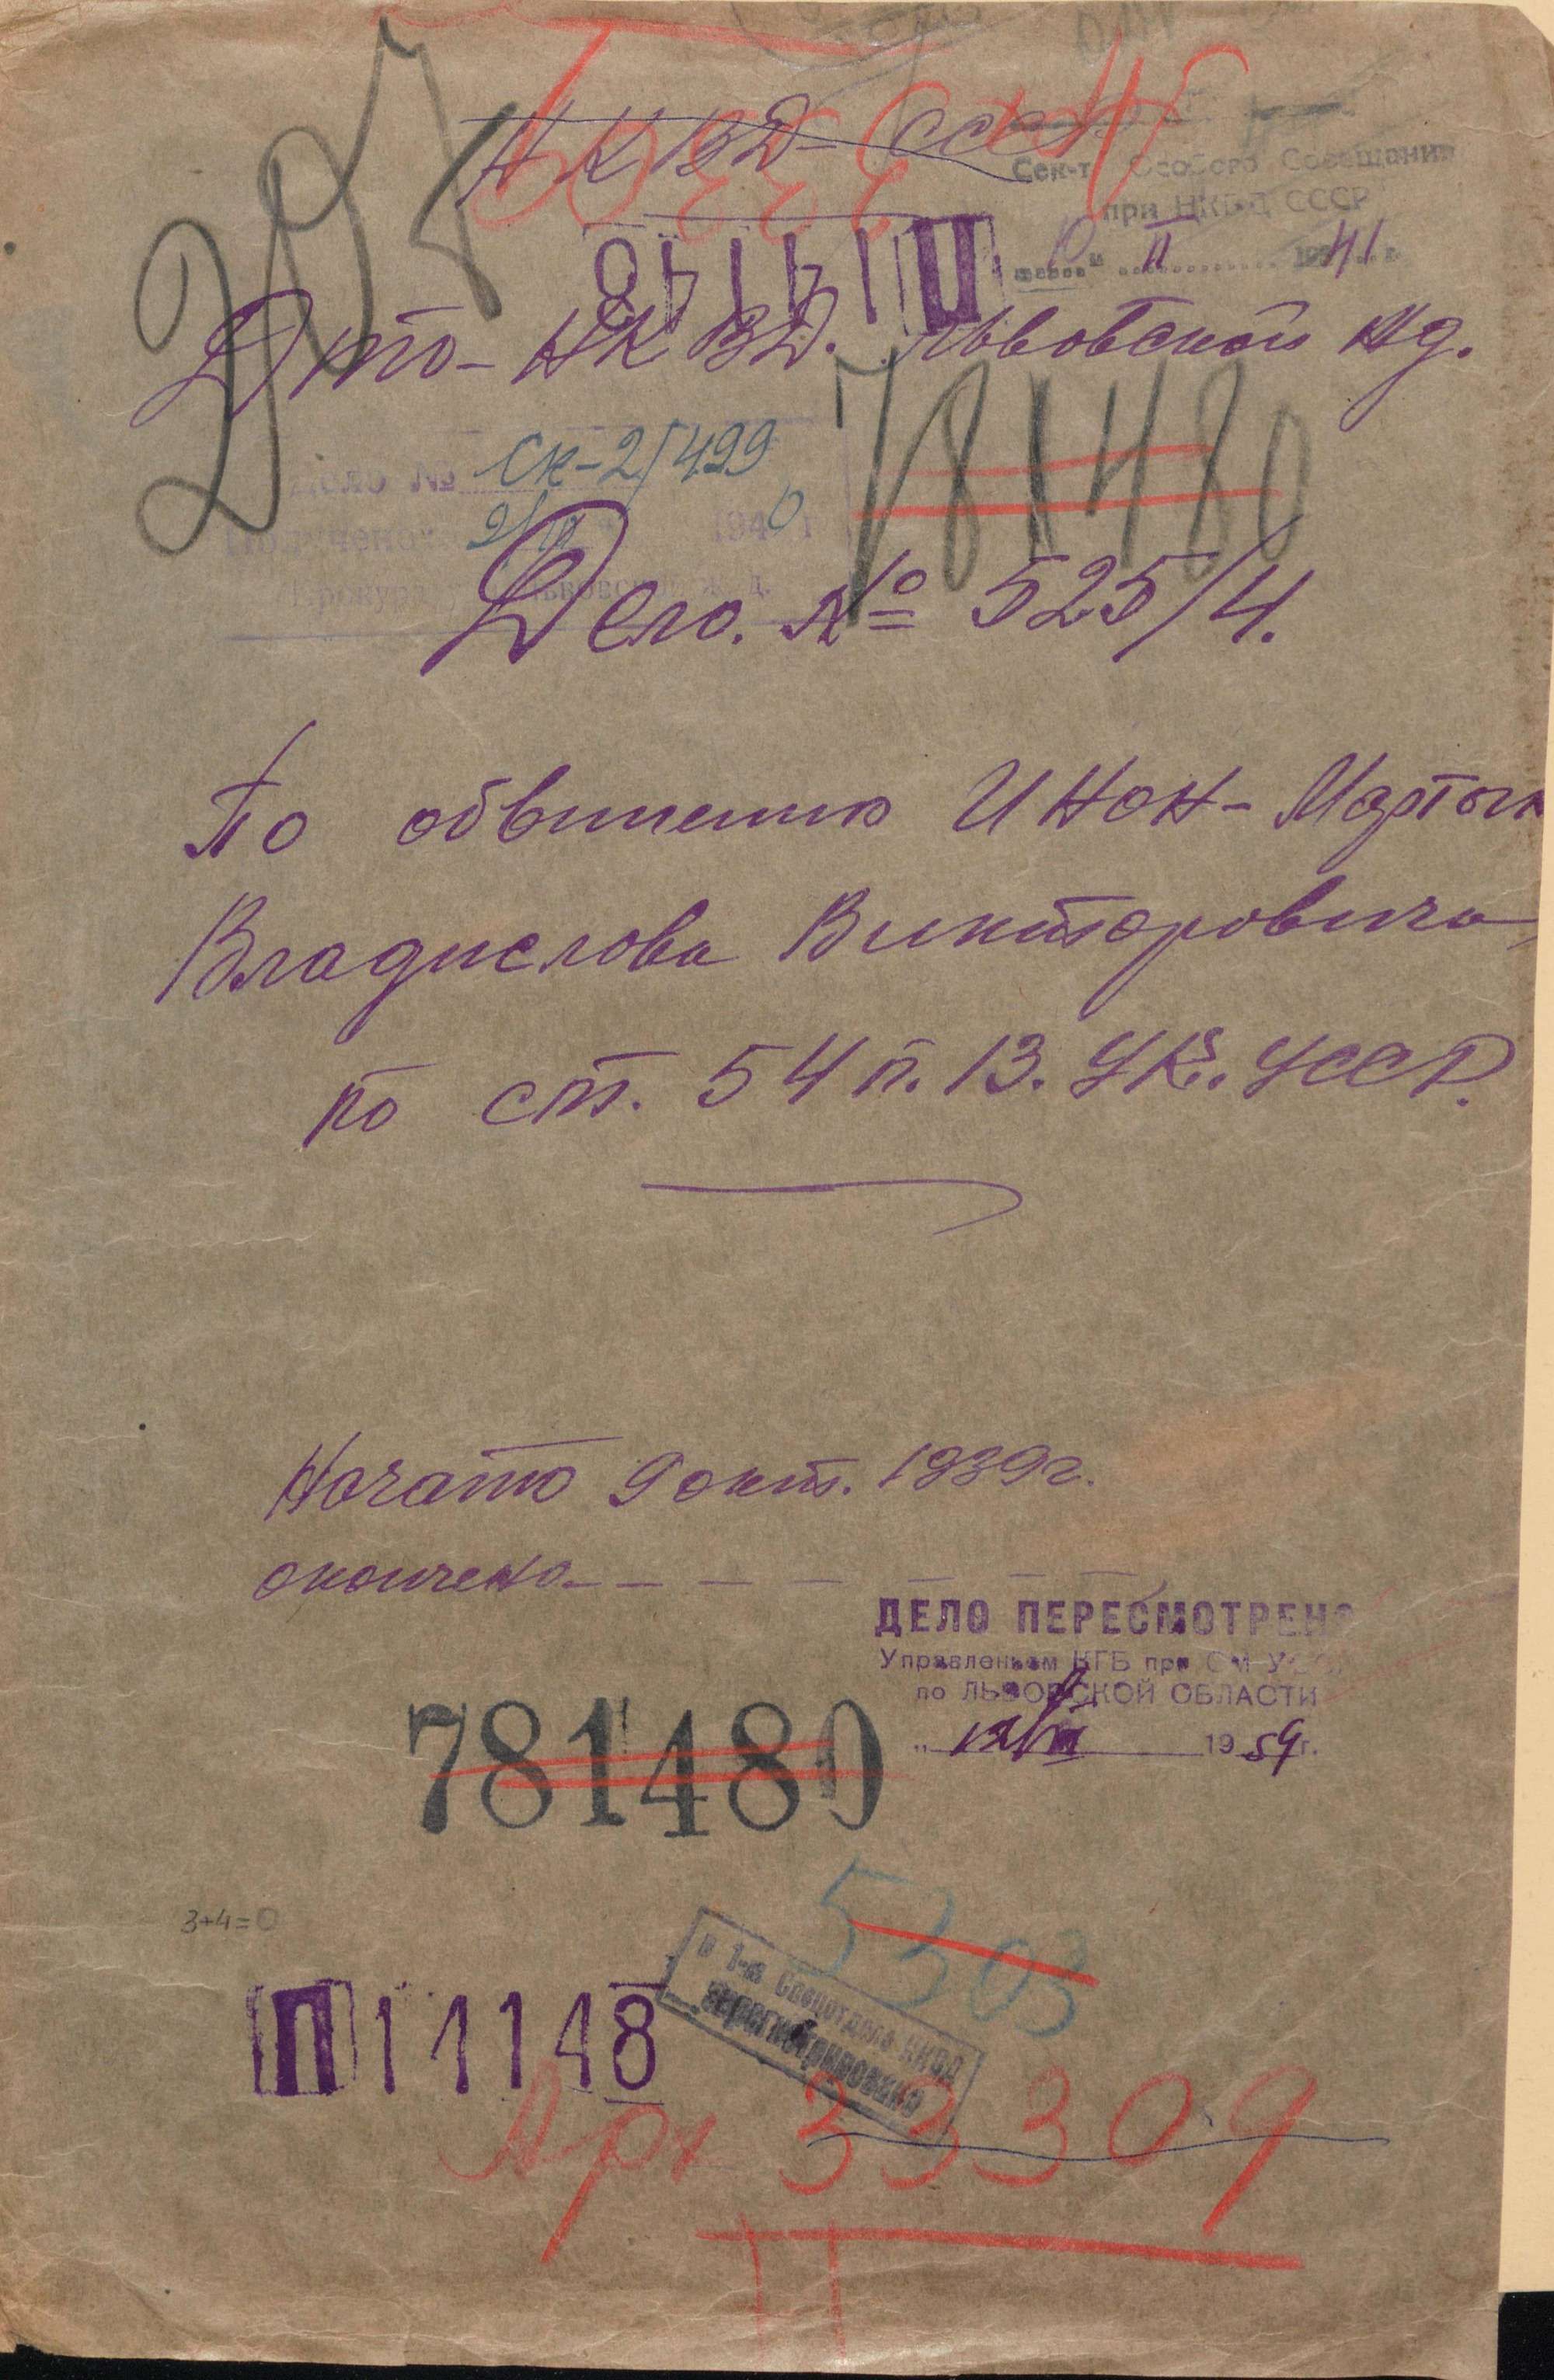 НКВД - СССР
Сек-т Особого Совещания
при НКВД СССР
П 14148
10 II 1941 г.
Дто - НКВД. Львовской жд.
Дело № СК-2/499
781480
Получено 1940 г
Прокур Львовской ж. д.
Дело. № 525/4.
По обвинению Инон-Мартын
Владислова Викторовича
по ст. 54 п. 13. УК. УССР.
Начато 9 окт. 1939 г.
окончено - - - - - - -
ДЕЛО ПЕРЕСМОТРЕНО
Управлением КГБ при СМ УССР
по ЛЬВОВСКОЙ ОБЛАСТИ
1959 г.
781480
3+4=0
5303
П 14148
в 1-м Спецотделе НКВД
зарегистрировано
Арх 33309